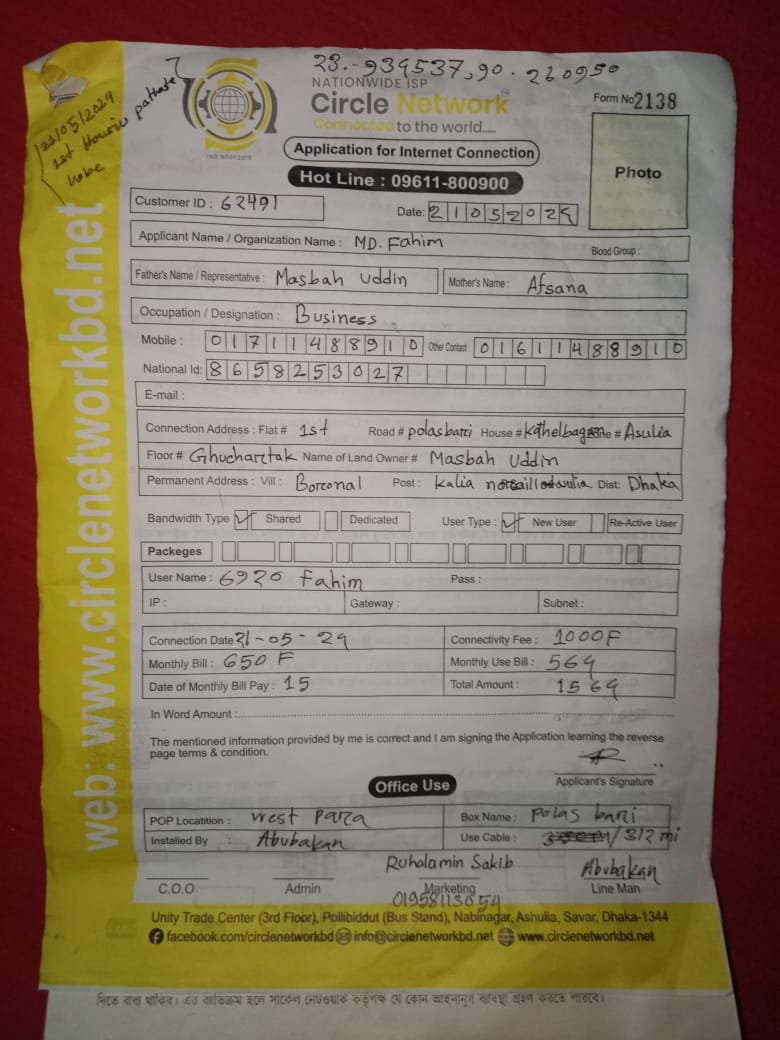 23.-939537,90.260950
NATIONWIDE ISP
Circle Network
Connected to the world.....
ISO 9001:2015
Form No 2138
21/05/2024
1st House pathate
hobe
Application for Internet Connection
Photo
Hot Line : 09611-800900
Customer ID : 62491
Date: 21052024
Applicant Name / Organization Name : MD. Fahim
Blood Group :
Father's Name / Representative : Masbah Uddin Mother's Name : Afsana
Occupation / Designation : Business
Mobile : 01711488910 Other Contact : 01611488910
National Id: 8658253027
E-mail :
Connection Address : Flat # 1st Road # polasbari House # Kathelbag Zone # Asulia
Floor # Ghuchartak Name of Land Owner # Masbah Uddin
Permanent Address : Vill : Borconal Post : Kalia Dist: Dhaka
Bandwidth Type Shared Dedicated User Type : New User Re-Active User
Packeges
User Name : 6920 Fahim Pass :
IP : Gateway : Subnet :
Connection Date 21-05-24 Connectivity Fee : 1000F
Monthly Bill : 650 F Monthly Use Bill : 564
Date of Monthly Bill Pay : 15 Total Amount : 1564
In Word Amount :
The mentioned information provided by me is correct and I am signing the Application learning the reverse
page terms & condition.
Applicant's Signature
Office Use
POP Locatition : West Para Box Name : Polas bari
Installed By : Abubakar Use Cable : /312 mi
Ruhalamin Sakib Abubakar
C.O.O Admin Marketing Line Man
01958113054
Unity Trade Center (3rd Floor), Pollibiddut (Bus Stand), Nabinagar, Ashulia, Savar, Dhaka-1344
facebook.com/circlenetworkbd info@circlenetworkbd.net www.circlenetworkbd.net
web: www.circlenetworkbd.net
দিতে বাধ্য থাকিব। এর ব্যতিক্রম হলে সার্কেল নেটওয়ার্ক কর্তৃপক্ষ যে কোন আইনানুগ ব্যবস্থা গ্রহণ করতে পারবে।